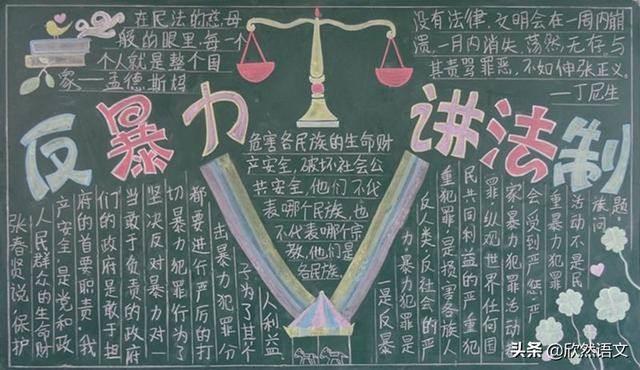 在民法的慈母
般的眼里,每一
个人就是整个国
家——孟德斯鸠
没有法律,文明会在一周内崩
溃,一月内消失,荡然无存,与
其责骂罪恶,不如伸张正义。
——丁尼生
反暴力 讲法制
张春贤说:保护
人民群众的生命财
产安全,是党和政
府的首要职责。我
们的政府是敢于担
当敢于负责的政府
坚决反对暴力对一
切暴力犯罪行为了
都要进行严厉的打
击暴力犯罪分
子为了其个
人利益,
危害各民族的生命财
产安全,破坏社会公
共安全,他们不代
表哪个民族,也
不代表哪个宗
教,他们是
各民族
一是反暴
力暴力犯罪是
反人类反社会的严
重犯罪,是损害各族人
民共同利益的严重犯
罪,纵观世界任何国
家暴力犯罪活动
会受到严惩,严
重暴力犯罪
活动不是民
族问
题
头条 @欣然语文